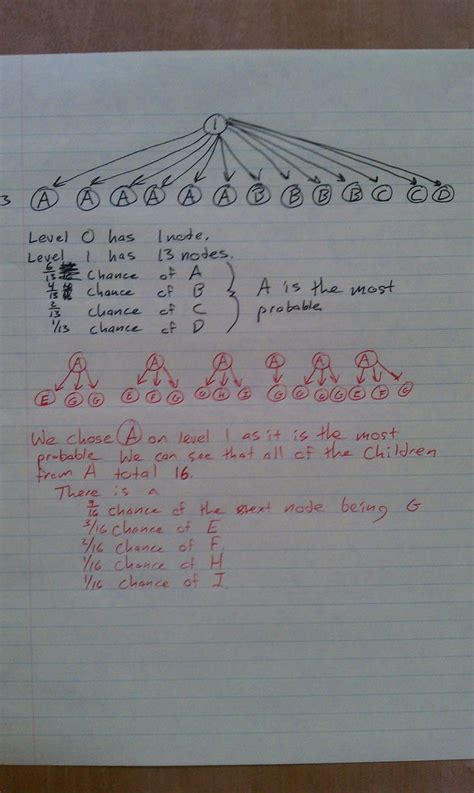 1
3 A A A A A A B B B B C C D
Level 0 has 1 node.
Level 1 has 13 nodes.
6/13 chance of A
4/13 chance of B
2/13 chance of C
1/13 chance of D
A is the most
probable
A A A A A A
E G G E F G G H I G G G G E F G
We chose A on level 1 as it is the most
probable We can see that all of the Children
from A total 16.
There is a
9/16 chance of the next node being G
3/16 chance of E
2/16 chance of F
1/16 chance of H
1/16 chance of I